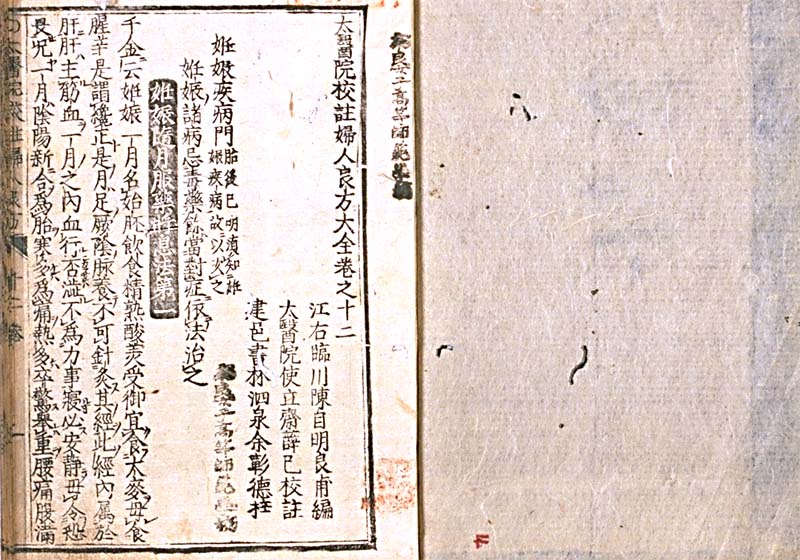 太醫院校註婦人良方大全卷之十二
江右臨川陳自明良甫編
太醫院使立齋薛己校註
建邑書林泗泉余彰德梓
妊娠疾病門胎後已明須知
娠疾病故以次之
妊娠諸病忌毒藥餘當對症依法治之
妊娠隨月服藥將息法第一
千金云妊娠一月名始胚飲食精熟酸美受御宜食大麥毋食
腥辛是謂正是月足厥陰脉養不可針灸其經此經內屬於
肝肝主筋血一月之內血行否澁不為力事寢必安靜毋令恐
畏一月陰陽新合為胎寒多為痛熱多卒驚舉重腰痛腹滿